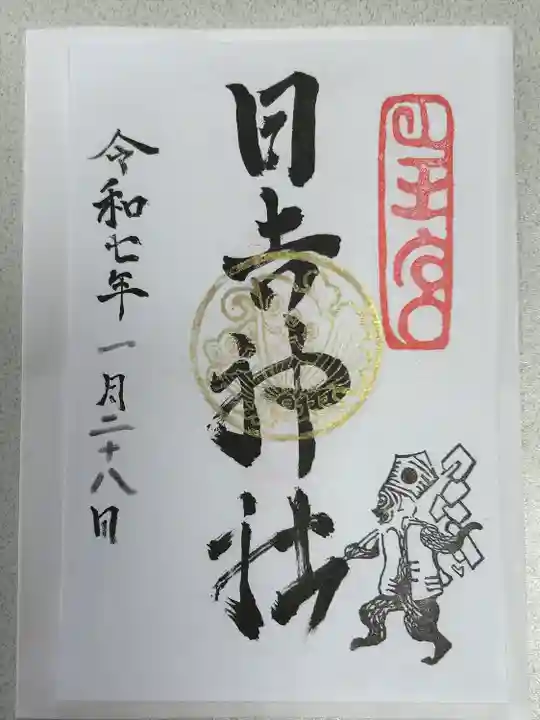 日王宮
日吉神社
令和七年一月二十八日